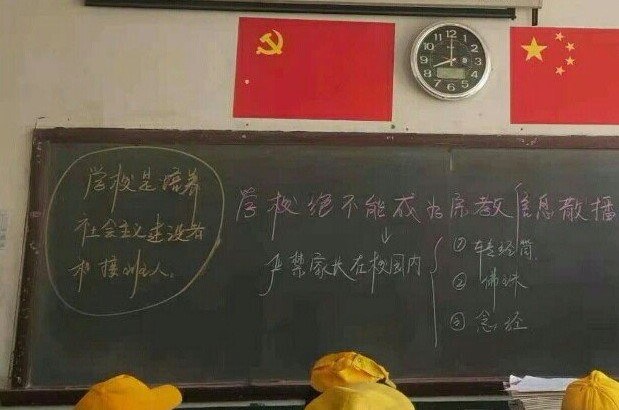 学校是培养
社会主义建设者
和接班人。
学校绝不能成为宗教信息散播
↓
严禁家长在校园内
① 转经筒
② 佛珠
③ 念经
12
1
2
3
4
5
6
7
8
9
10
11